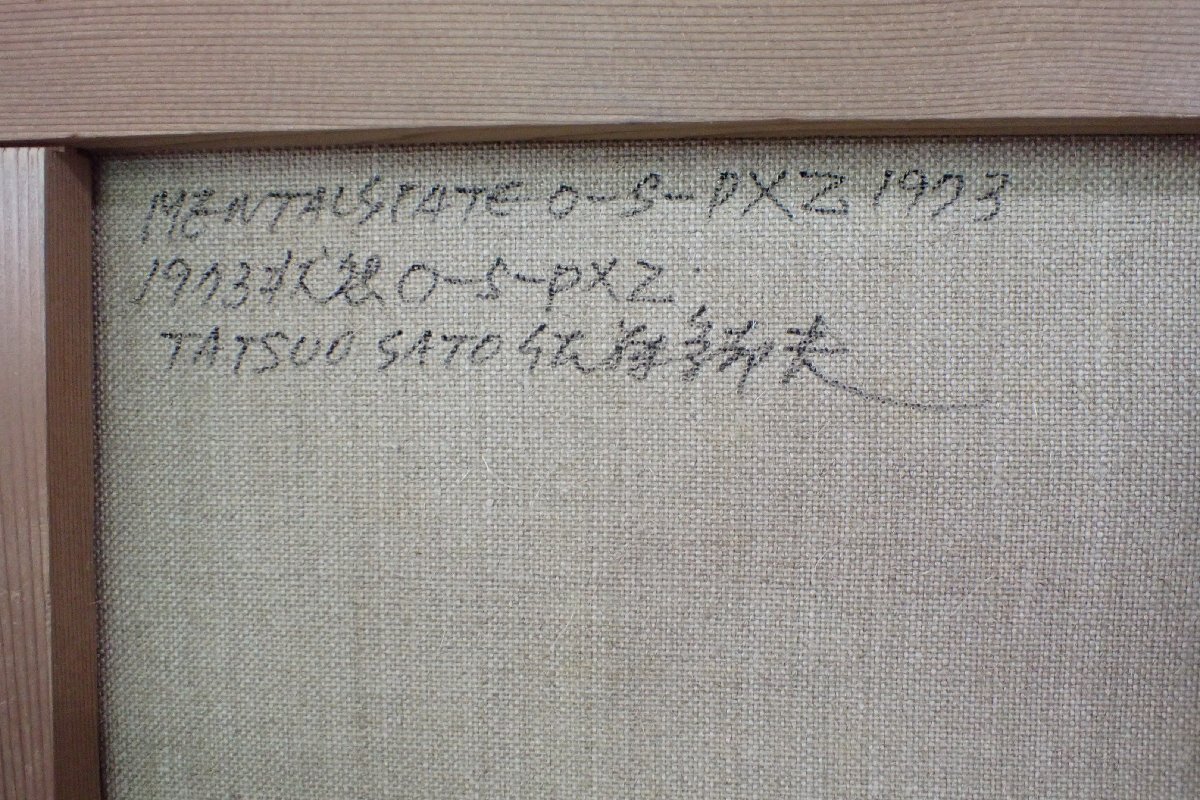 MENTAL STATE O-S-PXZ 1973
1973状態 O-S-PXZ
TATSUO SATO 夫